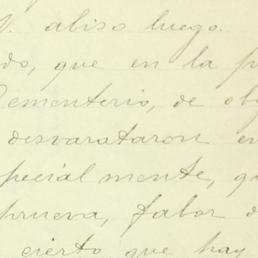 V. abiso luego.
do, que en la p
Cementerio, de ob
desvarataron en
pecial mente, qu
prueva, fabor d
cierto que hay